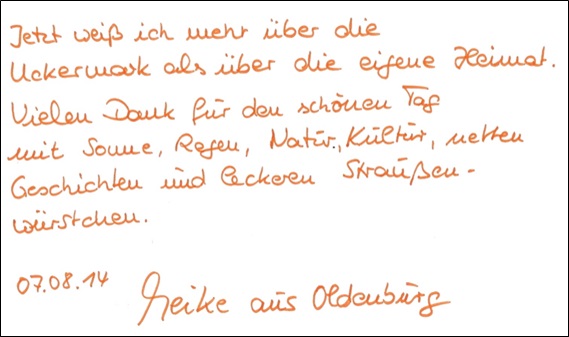 Jetzt weiß ich mehr über die
Uckermark als über die eigene Heimat.
Vielen Dank für den schönen Tag
mit Sonne, Regen, Natur, Kultur, netten
Geschichten und leckeren Straußen-
würstchen.
07.08.14
Heike aus Oldenburg